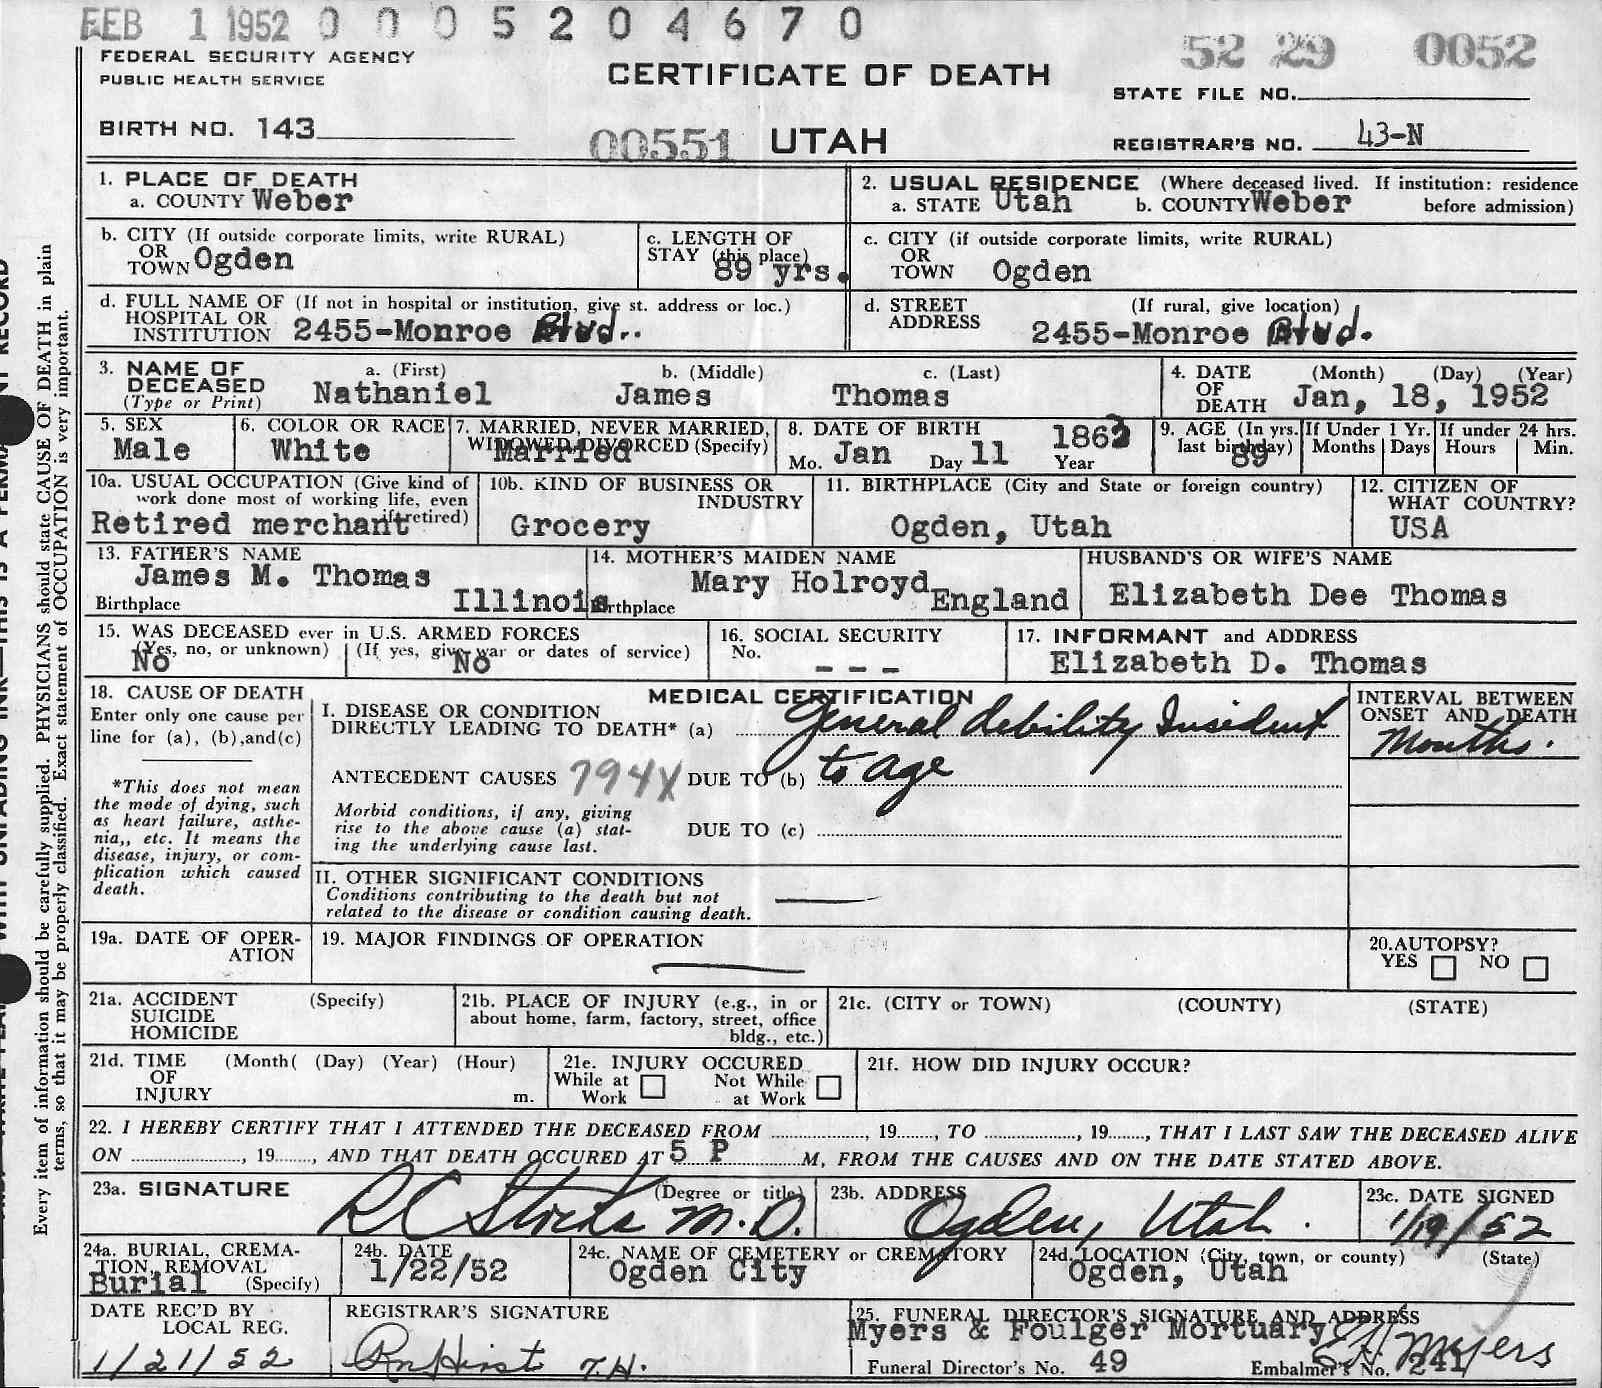 FEB 1 1952 0 0 0 5 2 0 4 6 7 0
52 29 0052
FEDERAL SECURITY AGENCY
PUBLIC HEALTH SERVICE
CERTIFICATE OF DEATH
STATE FILE NO.
BIRTH NO. 143
00551 UTAH
REGISTRAR'S NO. 43-N
1. PLACE OF DEATH
a. COUNTY Weber
2. USUAL RESIDENCE (Where deceased lived. If institution: residence
a. STATE Utah b. COUNTY Weber before admission)
b. CITY (If outside corporate limits, write RURAL)
OR
TOWN Ogden
c. LENGTH OF
STAY (this place)
89 yrs.
c. CITY (if outside corporate limits, write RURAL)
OR
TOWN Ogden
d. FULL NAME OF (If not in hospital or institution, give st. address or loc.)
HOSPITAL OR
INSTITUTION 2455-Monroe Blvd.
d. STREET (If rural, give location)
ADDRESS 2455-Monroe Blvd.
3. NAME OF a. (First) b. (Middle) c. (Last)
DECEASED Nathaniel James Thomas
(Type or Print)
4. DATE (Month) (Day) (Year)
OF
DEATH Jan, 18, 1952
5. SEX
Male
6. COLOR OR RACE
White
7. MARRIED, NEVER MARRIED,
WIDOWED, DIVORCED (Specify)
Married
8. DATE OF BIRTH 1863
Mo. Jan Day 11 Year
9. AGE (In yrs.
last birthday)
89
If Under 1 Yr.
Months Days
If under 24 hrs.
Hours Min.
10a. USUAL OCCUPATION (Give kind of
work done most of working life, even
if retired)
Retired merchant
10b. KIND OF BUSINESS OR
INDUSTRY
Grocery
11. BIRTHPLACE (City and State or foreign country)
Ogden, Utah
12. CITIZEN OF
WHAT COUNTRY?
USA
13. FATHER'S NAME
James M. Thomas
Birthplace Illinois
14. MOTHER'S MAIDEN NAME
Mary Holroyd
Birthplace England
HUSBAND'S OR WIFE'S NAME
Elizabeth Dee Thomas
15. WAS DECEASED ever in U.S. ARMED FORCES
(Yes, no, or unknown) (If yes, give war or dates of service)
No No
16. SOCIAL SECURITY
No.
- - -
17. INFORMANT and ADDRESS
Elizabeth D. Thomas
18. CAUSE OF DEATH
Enter only one cause per
line for (a), (b),and(c)
*This does not mean
the mode of dying, such
as heart failure, asthe-
nia,, etc. It means the
disease, injury, or com-
plication which caused
death.
MEDICAL CERTIFICATION
I. DISEASE OR CONDITION
DIRECTLY LEADING TO DEATH* (a) General debility Insident
ANTECEDENT CAUSES 794X DUE TO (b) to age
Morbid conditions, if any, giving
rise to the above cause (a) stat-
ing the underlying cause last.
DUE TO (c)
INTERVAL BETWEEN
ONSET AND DEATH
Months.
II. OTHER SIGNIFICANT CONDITIONS
Conditions contributing to the death but not
related to the disease or condition causing death.
19a. DATE OF OPER-
ATION
19. MAJOR FINDINGS OF OPERATION
20. AUTOPSY?
YES NO
21a. ACCIDENT (Specify)
SUICIDE
HOMICIDE
21b. PLACE OF INJURY (e.g., in or
about home, farm, factory, street, office
bldg., etc.)
21c. (CITY or TOWN) (COUNTY) (STATE)
21d. TIME (Month( (Day) (Year) (Hour)
OF
INJURY m.
21e. INJURY OCCURED
While at Not While
Work at Work
21f. HOW DID INJURY OCCUR?
22. I HEREBY CERTIFY THAT I ATTENDED THE DECEASED FROM ........, 19......, TO ........, 19......, THAT I LAST SAW THE DECEASED ALIVE
ON ........, 19......, AND THAT DEATH OCCURED AT 5 P M, FROM THE CAUSES AND ON THE DATE STATED ABOVE.
23a. SIGNATURE (Degree or title)
M.D.
23b. ADDRESS
Ogden, Utah.
23c. DATE SIGNED
1/19/52
24a. BURIAL, CREMA-
TION, REMOVAL
Burial (Specify)
24b. DATE
1/22/52
24c. NAME OF CEMETERY or CREMATORY
Ogden City
24d. LOCATION (City, town, or county) (State)
Ogden, Utah
DATE REC'D BY
LOCAL REG.
1/21/52
REGISTRAR'S SIGNATURE
25. FUNERAL DIRECTOR'S SIGNATURE AND ADDRESS
Myers & Foulger Mortuary Myers
Funeral Director's No. 49 Embalmer's No. 241
Every item of information should be carefully supplied. PHYSICIANS should state CAUSE OF DEATH in plain
terms, so that it may be properly classified. Exact statement of OCCUPATION is very important.